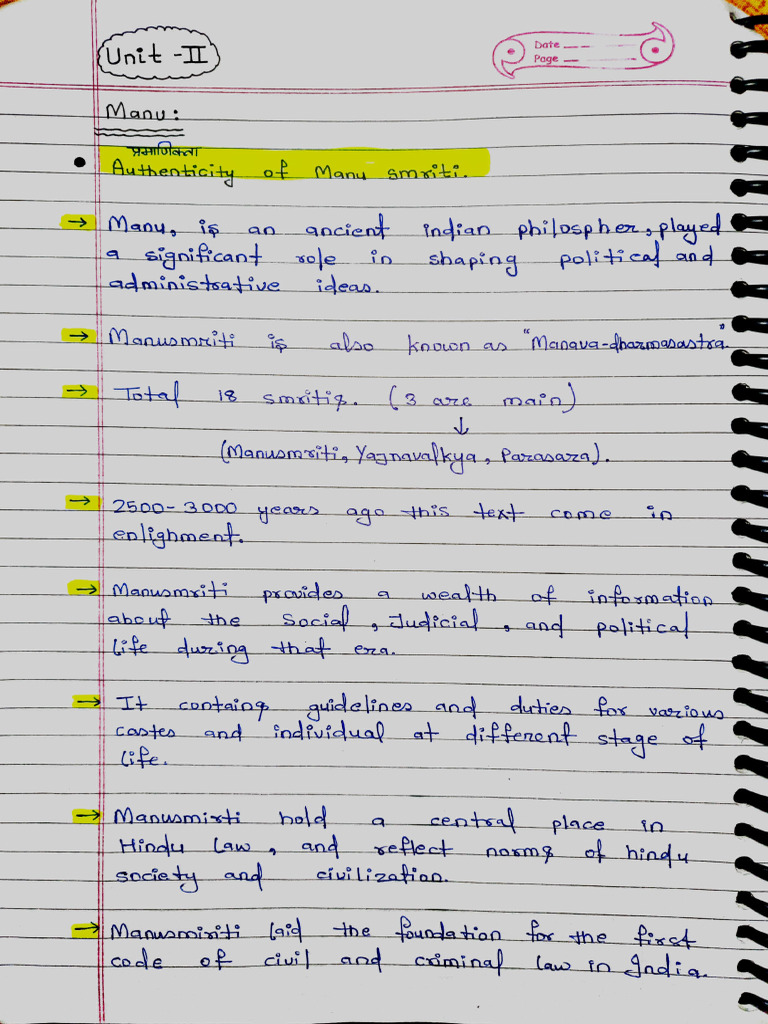 Unit - II
Date
Page
Manu:
प्रमाणिकता
• Authenticity of Manu smriti.
→ Manu, is an ancient indian philospher, played
a significant role in shaping political and
administrative ideas.
→ Manusmriti is also known as "Manava-dharmasastra"
→ Total 18 smritis. (3 are main)
↓
(Manusmriti, Yajnavalkya, Parasara).
→ 2500-3000 years ago this text come in
enlighment.
→ Manusmriti provides a wealth of information
about the Social, Judicial, and political
life during that era.
→ It contains guidelines and duties for various
castes and individual at different stage of
life.
→ Manusmirti hold a central place in
Hindu Law, and reflect norms of hindu
society and civilization.
→ Manusmiriti laid the foundation for the first
code of civil and criminal law in India.